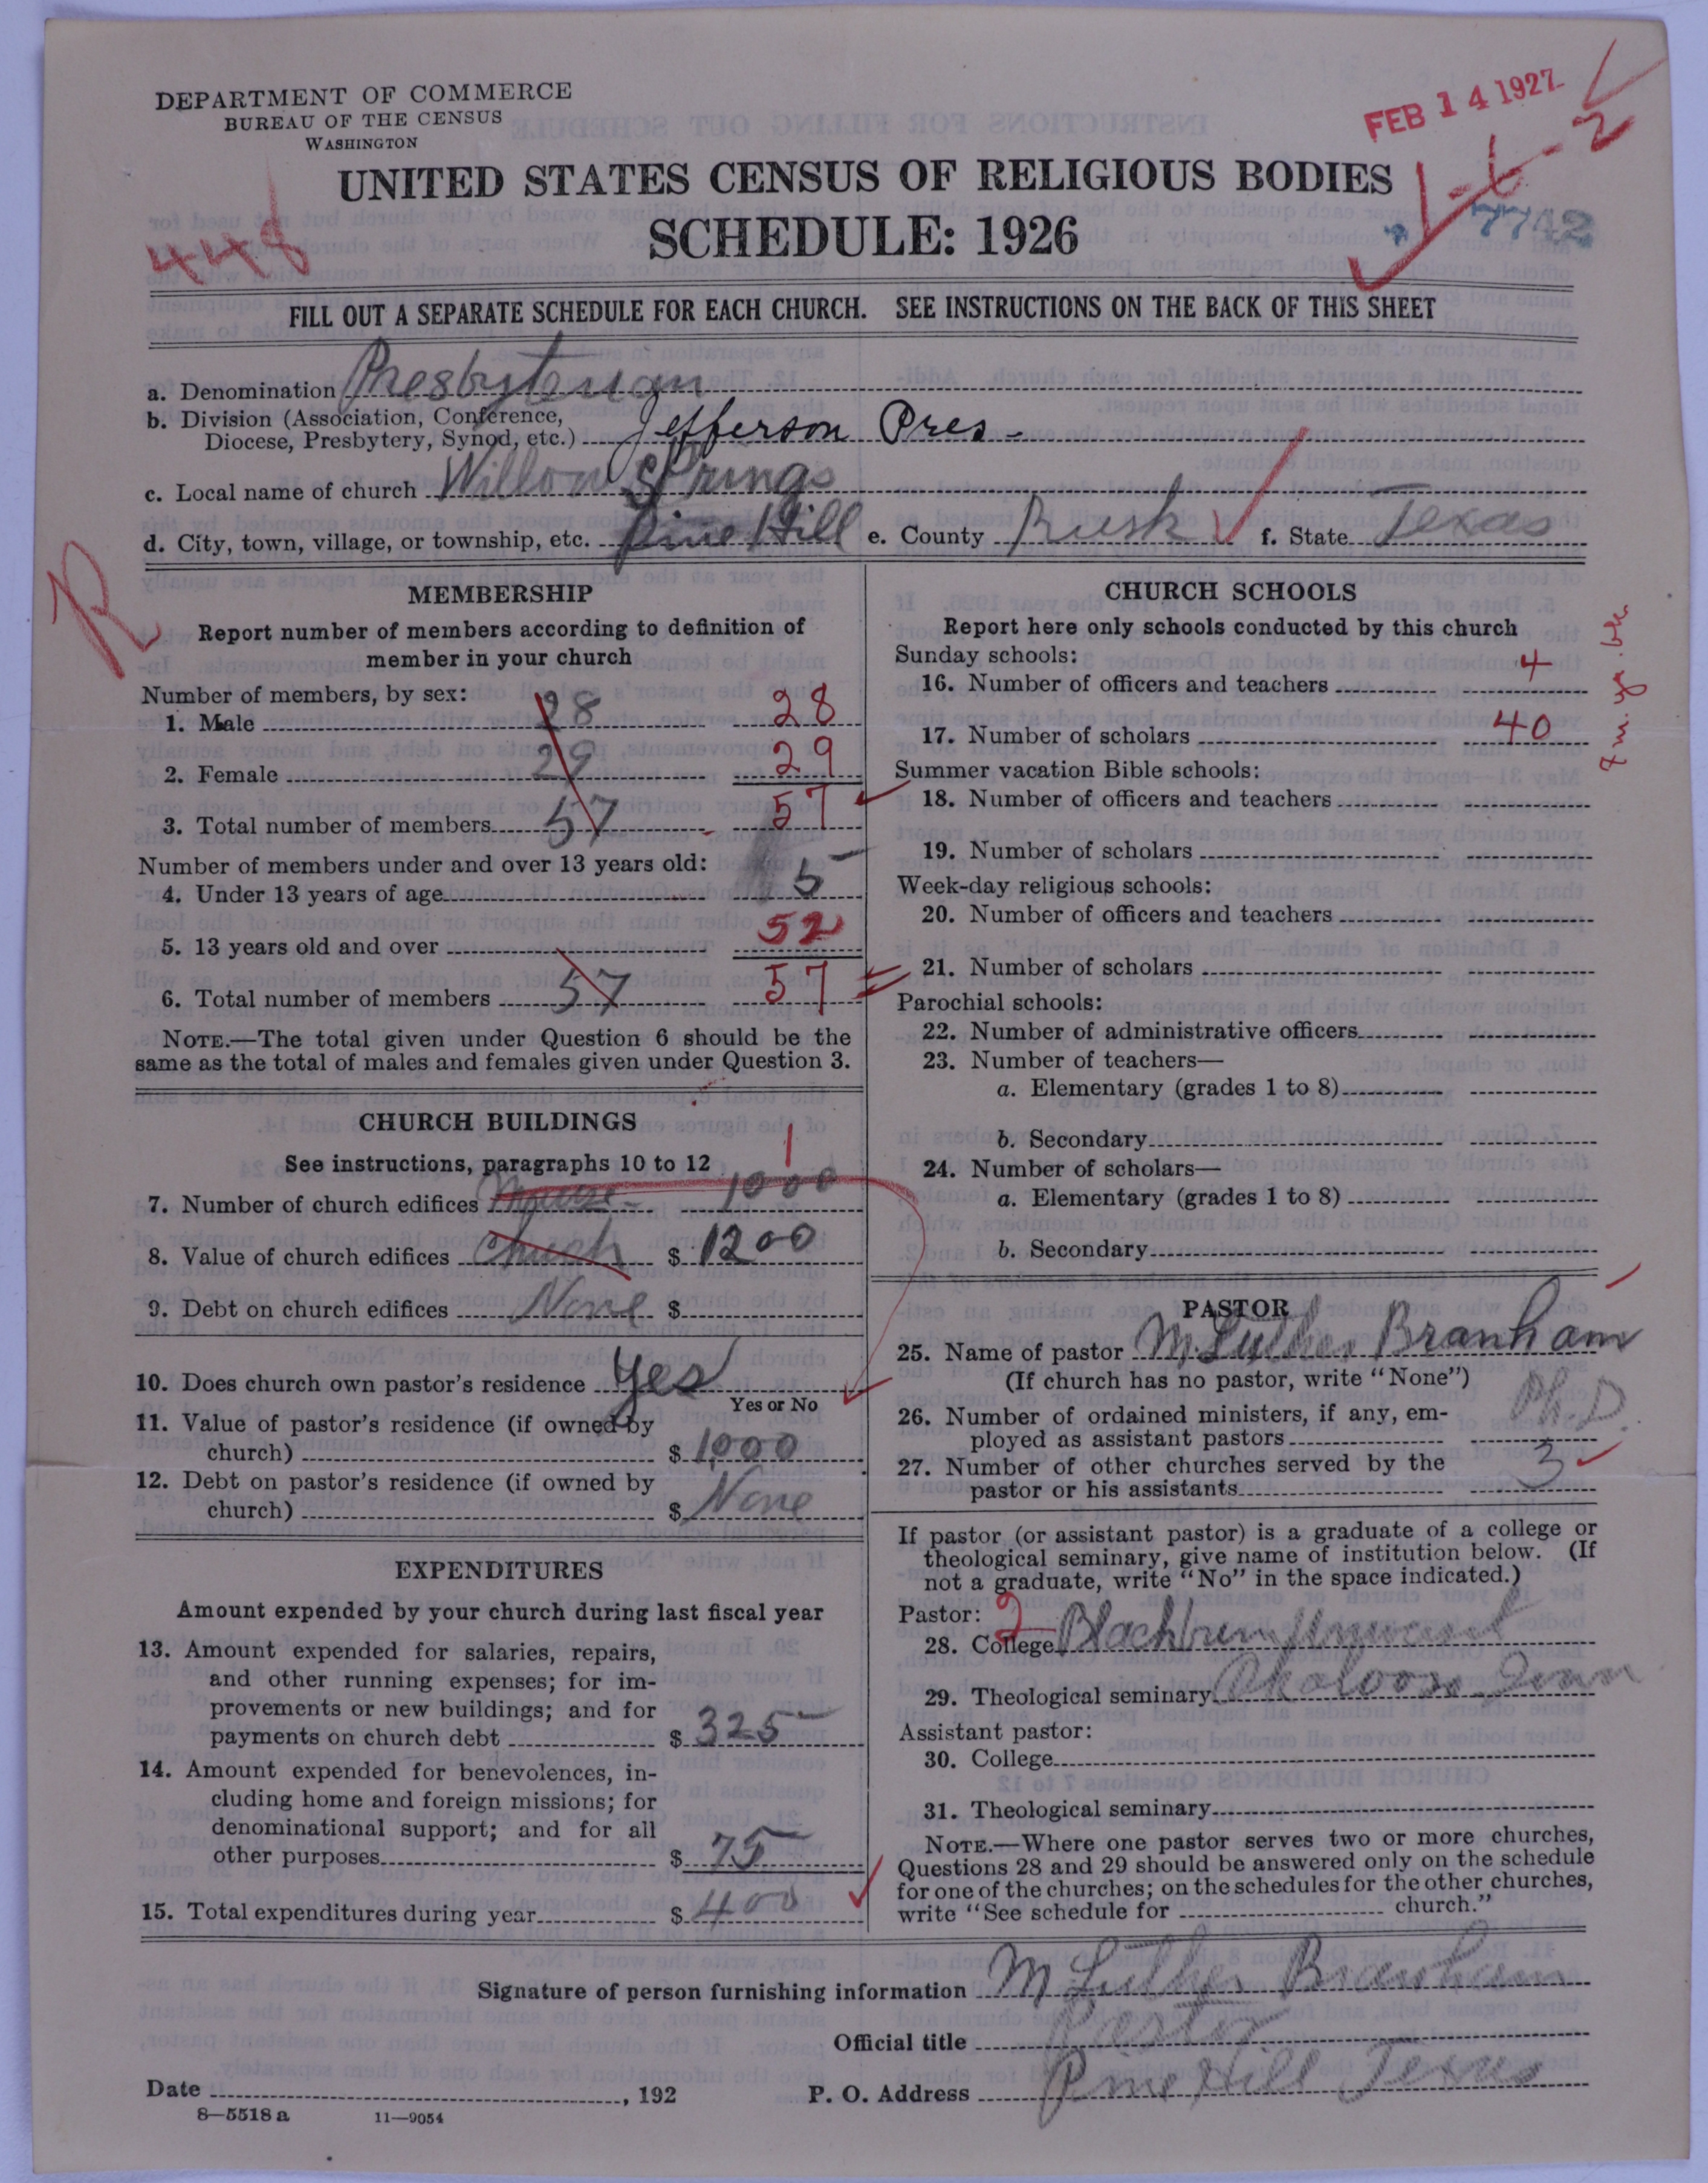 DEPARTMENT OF COMMERCE
BUREAU OF THE CENSUS
WASHINGTON
FEB 14 1927
UNITED STATES CENSUS OF RELIGIOUS BODIES
SCHEDULE: 1926
448
1-6-2
7742
FILL OUT A SEPARATE SCHEDULE FOR EACH CHURCH. SEE INSTRUCTIONS ON THE BACK OF THIS SHEET
a. Denomination Presbyterian
b. Division (Association, Conference,
Diocese, Presbytery, Synod, etc.) Jefferson Pres-
c. Local name of church Willow Springs
d. City, town, village, or township, etc. Pine Hill e. County Rusk f. State Texas
R
MEMBERSHIP
Report number of members according to definition of
member in your church
Number of members, by sex:
1. Male 28 28
2. Female 29 29
3. Total number of members 57 57
Number of members under and over 13 years old:
4. Under 13 years of age 5
5. 13 years old and over 52
6. Total number of members 57 57
NOTE.—The total given under Question 6 should be the
same as the total of males and females given under Question 3.
CHURCH BUILDINGS
See instructions, paragraphs 10 to 12 1
7. Number of church edifices 1000
8. Value of church edifices Church $ 1200
9. Debt on church edifices None $
10. Does church own pastor's residence Yes
Yes or No
11. Value of pastor's residence (if owned by
church) $ 1,000
12. Debt on pastor's residence (if owned by
church) $ None
EXPENDITURES
Amount expended by your church during last fiscal year
13. Amount expended for salaries, repairs,
and other running expenses; for im-
provements or new buildings; and for
payments on church debt $ 325
14. Amount expended for benevolences, in-
cluding home and foreign missions; for
denominational support; and for all
other purposes $ 75
15. Total expenditures during year $ 400
CHURCH SCHOOLS
Report here only schools conducted by this church
Sunday schools:
16. Number of officers and teachers 4
17. Number of scholars 40
Summer vacation Bible schools:
18. Number of officers and teachers
19. Number of scholars
Week-day religious schools:
20. Number of officers and teachers
21. Number of scholars
Parochial schools:
22. Number of administrative officers
23. Number of teachers—
a. Elementary (grades 1 to 8)
b. Secondary
24. Number of scholars—
a. Elementary (grades 1 to 8)
b. Secondary
PASTOR
25. Name of pastor M. Luther Branham
(If church has no pastor, write "None") Ph.D.
26. Number of ordained ministers, if any, em-
ployed as assistant pastors
27. Number of other churches served by the
pastor or his assistants 3
If pastor (or assistant pastor) is a graduate of a college or
theological seminary, give name of institution below. (If
not a graduate, write "No" in the space indicated.)
Pastor: 2
28. College
29. Theological seminary
Assistant pastor:
30. College
31. Theological seminary
NOTE.—Where one pastor serves two or more churches,
Questions 28 and 29 should be answered only on the schedule
for one of the churches; on the schedules for the other churches,
write "See schedule for church."
Signature of person furnishing information M Luther Branham
Official title Pastor
Date , 192 P. O. Address Pine Hill Texas
8—5518 a 11—9054